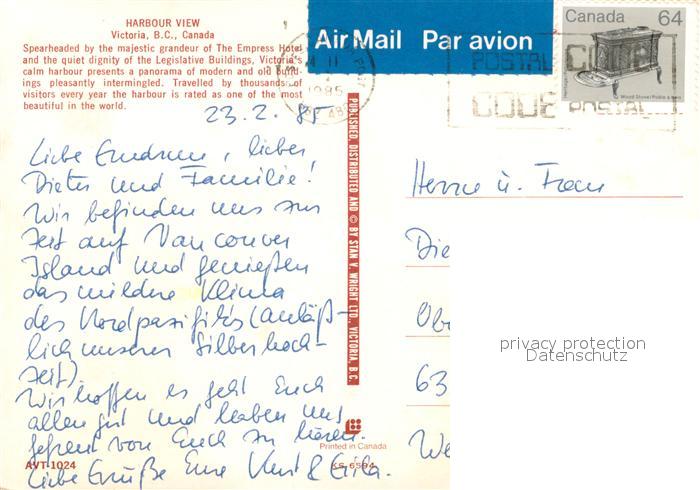 HARBOUR VIEW
Victoria, B.C., Canada
Spearheaded by the majestic grandeur of The Empress Hotel
and the quiet dignity of the Legislative Buildings, Victoria's
calm harbour presents a panorama of modern and old build-
ings pleasantly intermingled. Travelled by thousands of
visitors every year the harbour is rated as one of the most
beautiful in the world.
Air Mail Par avion
Canada 64
POSTAL CODE
CODE POSTAL
1985
23.2.85
Liebe Gudrun, lieber
Dieter und Familie!
Wir befinden uns zur
Zeit auf Vancouver
Island und genießen
das milde Klima
des Nordpazifiks (anläß-
lich unserer Silberhoch-
zeit)
Wir hoffen es geht Euch
allen gut und haben uns
gefreut von Euch zu hören.
Liebe Grüße Eure Kurt & Erika.
PUBLISHED, DISTRIBUTED AND © BY STAN V. WRIGHT LTD., VICTORIA, B.C.
Herrn u. Frau
Die
Obe
63
We
privacy protection
Datenschutz
Printed in Canada
AVT-1024
KS-6594